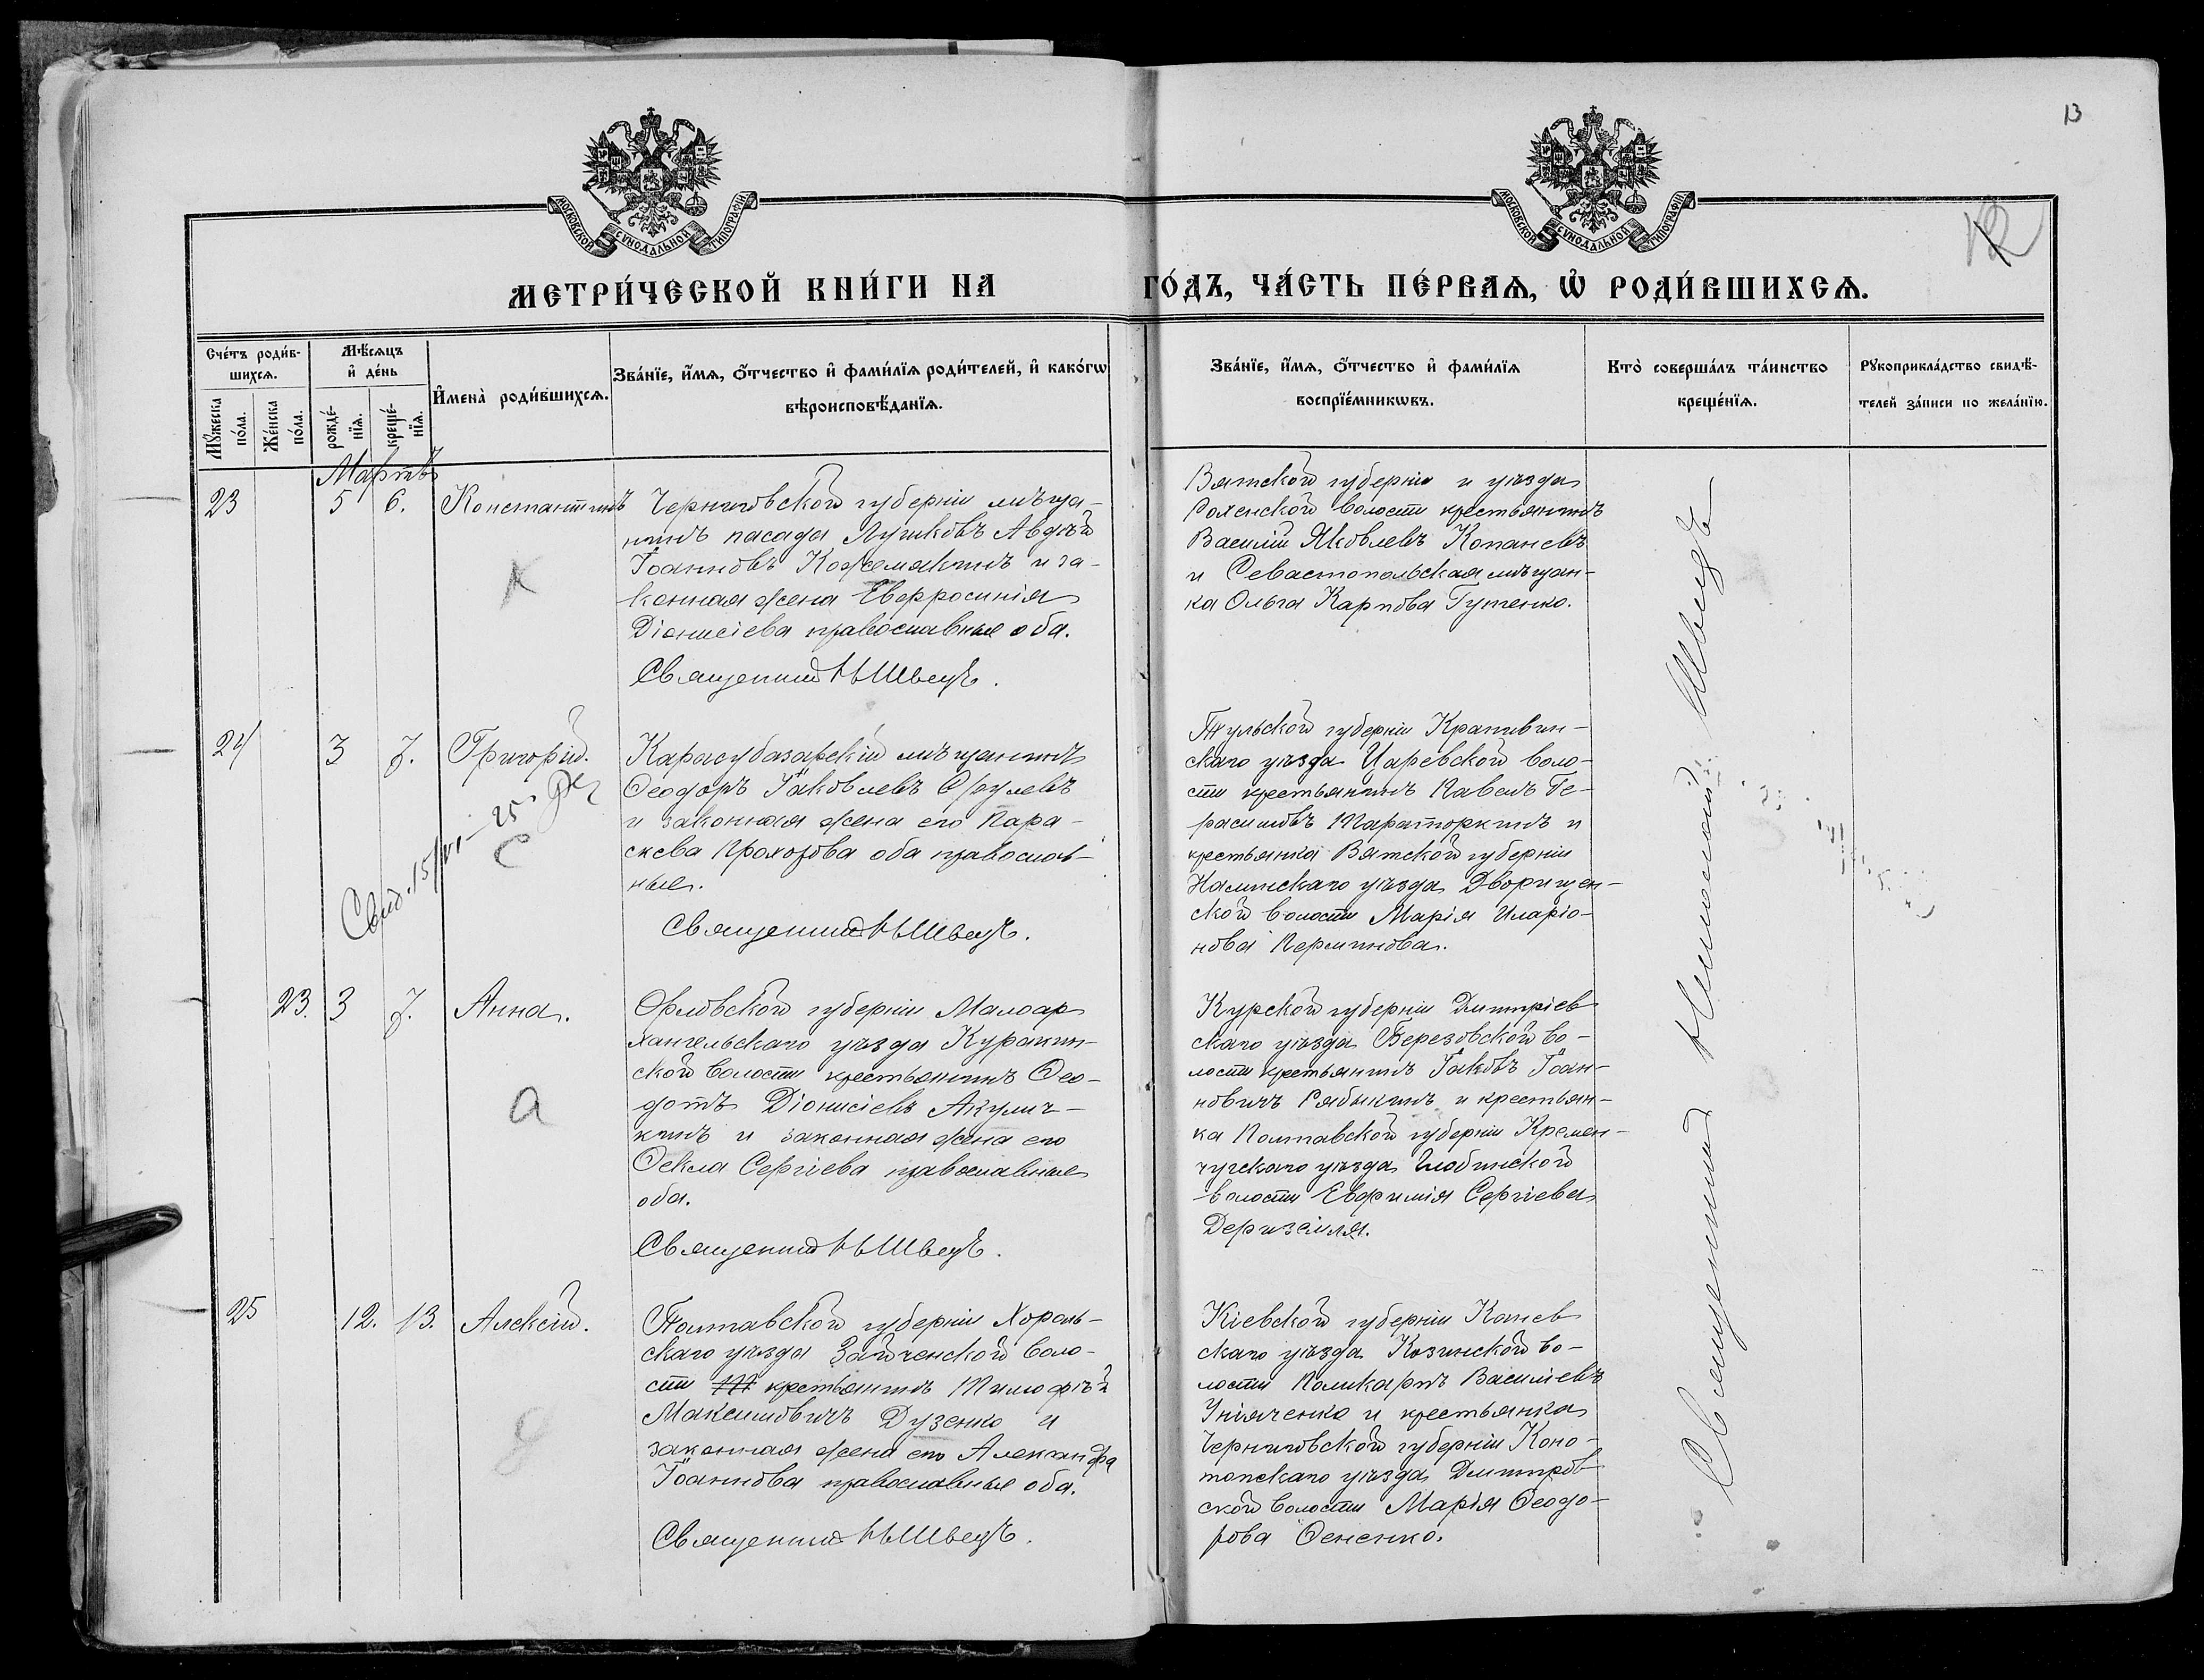 13
12
МОСКОВСКОЙ СѴНОДАЛЬНОЙ ТИПОГРАФІИ
МОСКОВСКОЙ СѴНОДАЛЬНОЙ ТИПОГРАФІИ
МЕТРИ́ЧЕСКОЙ КНИ́ГИ НА ГО́ДЪ, ЧА́СТЬ ПЕ́РВАѦ, Ѡ҆ РОДИ́ВШИХСѦ.
Сче́тъ роди́в-
шихсѧ.
Мꙋ́жеска по́ла.
Же́нска по́ла.
Мѣ́сѧцъ
и҆ де́нь
рожде́-
нїѧ.
креще́-
нїѧ.
И҆мена̀ роди́вшихсѧ.
Зва́нїе, и҆́мѧ, ѻ҆́тчество и҆ фами́лїѧ роди́телей, и҆ како́гѡ
вѣроисповѣ́данїѧ.
Зва́нїе, и҆́мѧ, ѻ҆́тчество и҆ фами́лїѧ
воспрїе́мникѡвъ.
Кто̀ соверша́лъ та́инство
креще́нїѧ.
Рꙋкоприкла́дство свидѣ́-
телей за́писи по жела́нїю.
Мартъ
23 5 6. Константинъ
Черниговской губерніи мѣща-
нинъ пасада Лужковъ Авдѣй
Іоанновъ Кожемякинъ и за-
конная жена Евфросинія
Діонисіева православные оба.
Священникъ Н Швецъ.
Вятской губерніи и уѣзда
волости крестьянинъ
Василій Яковлевъ Копаневъ
и Севастопольская мѣщан-
ка Ольга Карпова Гутенко.
К
24 3 7. Григорій.
Карасубазарскій мѣщанинъ
Ѳеодоръ Іаковлевъ
и законная жена его Пара-
скева Прохорова оба православ-
ные.
Священникъ Н Швецъ.
Тульской губерніи Крапивин-
скаго уѣзда Царевской воло-
сти крестьянинъ Павелъ Ге-
расимовъ Тараторкинъ и
крестьянка Вятской губерніи
уѣзда Дворищен-
ской волости Марія Иларіо-
нова Перминова.
Свид. 15/VI – 25 г.
С
23. 3 7. Анна.
Орловской губерніи Малоар
хангельскаго уѣзда Куракин-
ской волости крестьянинъ Ѳео-
дотъ Діонисіевъ Акулич-
кинъ и законная жена его
Ѳекла Сергіева православные
оба.
Священникъ Н Швецъ.
Курской губерніи Дмитріев
скаго уѣзда Березовской во-
лости крестьянинъ Іаковъ Іоан-
новичъ Рябыкинъ и крестьян-
ка Полтавской губерніи Кремен-
чугскаго уѣзда Глобинской
волости Евфимія Сергіева
Деризе́мля.
а
25 12. 13. Алексій.
Полтавской губерніи Хороль-
скаго уѣзда Зайченской воло-
сти крестьянинъ Тимофѣй
Максимовичъ Дузенко и
законная жена его Александра
Іоаннова православные оба.
Священникъ Н Швецъ.
Кіевской губерніи Канев
скаго уѣзда Козинской во-
лости Поликарпъ Василіевъ
Уніяченко и крестьянка
Черниговской губерніи Коно-
топскаго уѣзда Дмитров
ской волости Марія Ѳеодо-
рова Ѳененко.
Священникъ Николай Швецъ